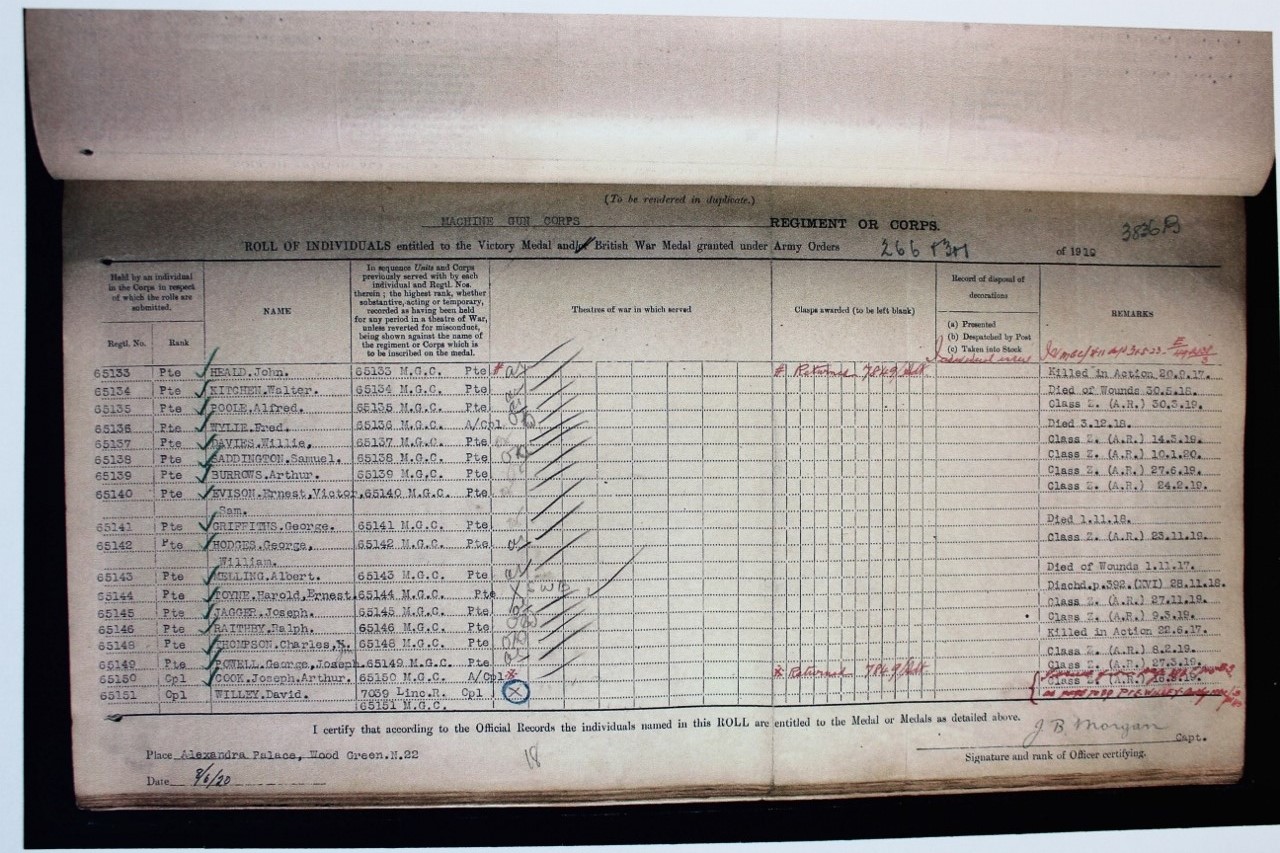 (To be rendered in duplicate.)
MACHINE GUN CORPS REGIMENT OR CORPS.
3836 B
ROLL OF INDIVIDUALS entitled to the Victory Medal and/or British War Medal granted under Army Orders 266 of 1919
Held by an individual in the Corps in respect of which the rolls are submitted.
Regtl. No. Rank
NAME
In sequence Units and Corps previously served with by each individual and Regtl. Nos. therein; the highest rank, whether substantive, acting or temporary, recorded as having been held for any period in a theatre of War, unless reverted for misconduct, being shown against the name of the regiment or Corps which is to be inscribed on the medal.
Theatres of war in which served
Clasps awarded (to be left blank)
Record of disposal of decorations
(a) Presented
(b) Despatched by Post
(c) Taken into Stock
REMARKS
65133 Pte HEALD.John. 65133 M.G.C. Pte # Returned 7849/Adt Killed in Action 20.9.17.
65134 Pte KITCHEN.Walter. 65134 M.G.C. Pte Died of Wounds 30.5.18.
65135 Pte POOLE.Alfred. 65135 M.G.C. Pte Class Z. (A.R.) 30.3.19.
65136 Pte WYLIE.Fred. 65136 M.G.C. A/Cpl Died 3.12.18.
65137 Pte DAVIES.Willie, 65137 M.G.C. Pte Class Z. (A.R.) 14.3.19.
65138 Pte SADDINGTON.Samuel. 65138 M.G.C. Pte Class Z. (A.R.) 10.1.20.
65139 Pte BURROWS.Arthur. 65139 M.G.C. Pte Class Z. (A.R.) 27.6.19.
65140 Pte EVISON.Ernest,Victor, 65140 M.G.C. Pte Class Z. (A.R.) 24.2.19.
Sam.
65141 Pte GRIFFITHS.George. 65141 M.G.C. Pte Died 1.11.18.
65142 Pte HODGES.George, 65142 M.G.C. Pte Class Z. (A.R.) 23.11.19.
William.
65143 Pte MELLING.Albert. 65143 M.G.C. Pte Died of Wounds 1.11.17.
65144 Pte TOYNE.Harold,Ernest. 65144 M.G.C. Pte SWB Dischd.p.392.(XVI) 28.11.18.
65145 Pte JAGGER.Joseph. 65145 M.G.C. Pte Class Z. (A.R.) 27.11.19.
65146 Pte RAITHBY.Ralph. 65146 M.G.C. Pte Class Z. (A.R.) 9.3.19.
65148 Pte THOMPSON.Charles, 65148 M.G.C. Pte Killed in Action 22.6.17.
65149 Pte POWELL.George,Joseph. 65149 M.G.C. Pte Class Z. (A.R.) 8.2.19.
65150 Cpl COOK.Joseph.Arthur. 65150 M.G.C. A/Cpl * Returned 7849/Adt Class Z. (A.R.) 27.3.19.
65151 Cpl WILLEY.David. 7039 Linc.R. Cpl Class Z.
65151 M.G.C.
I certify that according to the Official Records the individuals named in this ROLL are entitled to the Medal or Medals as detailed above.
J B Morgan Capt.
Place Alexandra Palace, Wood Green.N.22
18
Signature and rank of Officer certifying.
Date 9/6/20